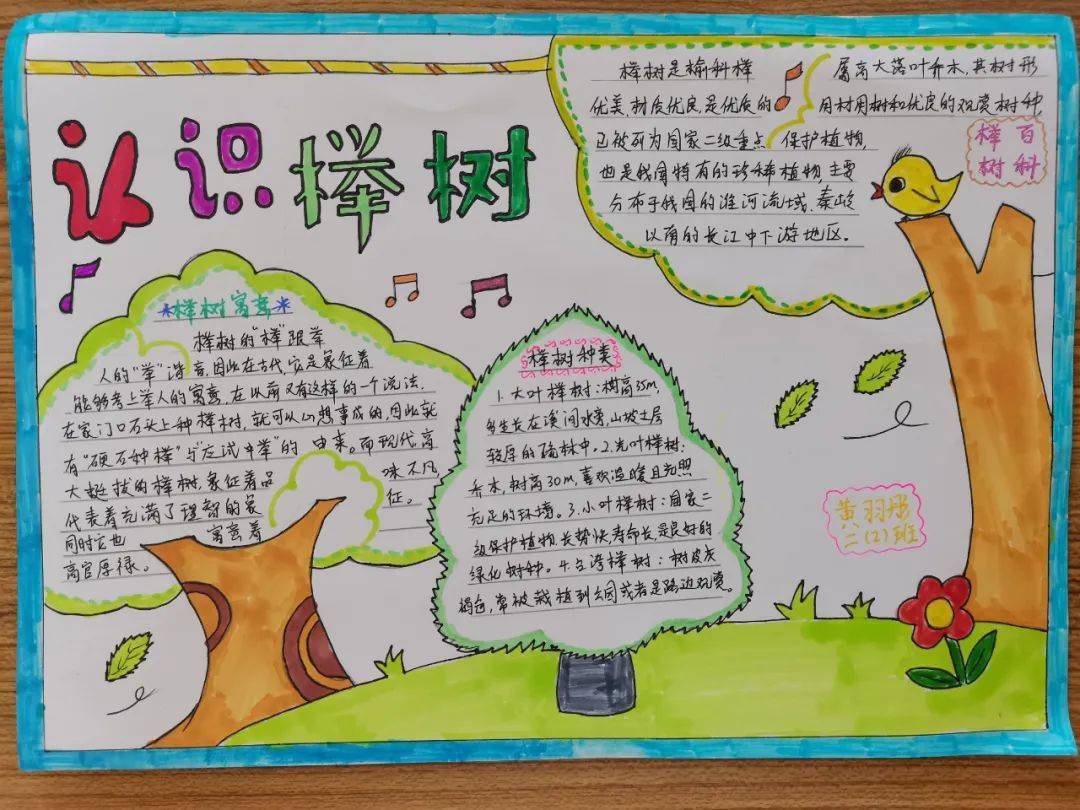 认识榉树
榉树是榆科榉 属高大落叶乔木,其树形
优美,材质优良是优良的 用材用树和优良的观赏树种,
已被列为国家二级重点 保护植物,
也是我国特有的珍稀植物主要
分布于我国的淮河流域、秦岭
以南的长江中下游地区.
榉百
树科
榉树寓意
榉树的"榉"跟举
人的"举"谐音,因此在古代,它是象征着
能够考上举人的寓意,在以前又有这样的一个说法,
在家门口石头上种榉树,就可以心想事成的,因此就
有"硬石种榉"与"应试中举"的由来。而现代高
大挺拔的榉树,象征着品味不凡
代表着充满了理智的象征。
同时它也寓意着
高官厚禄。
榉树种类
1.大叶榉树:树高35m,
多生长在溪间水旁,山坡土层
较厚的疏林中。2.光叶榉树:
乔木,树高30m,喜欢温暖且光照
充足的环境。3.小叶榉树:国家二
级保护植物,长势快,寿命长,是良好的
绿化树种。4.台湾榉树:树皮灰
褐色,常被栽植到公园或者是路边观赏。
黄羽彤
八二(2)班